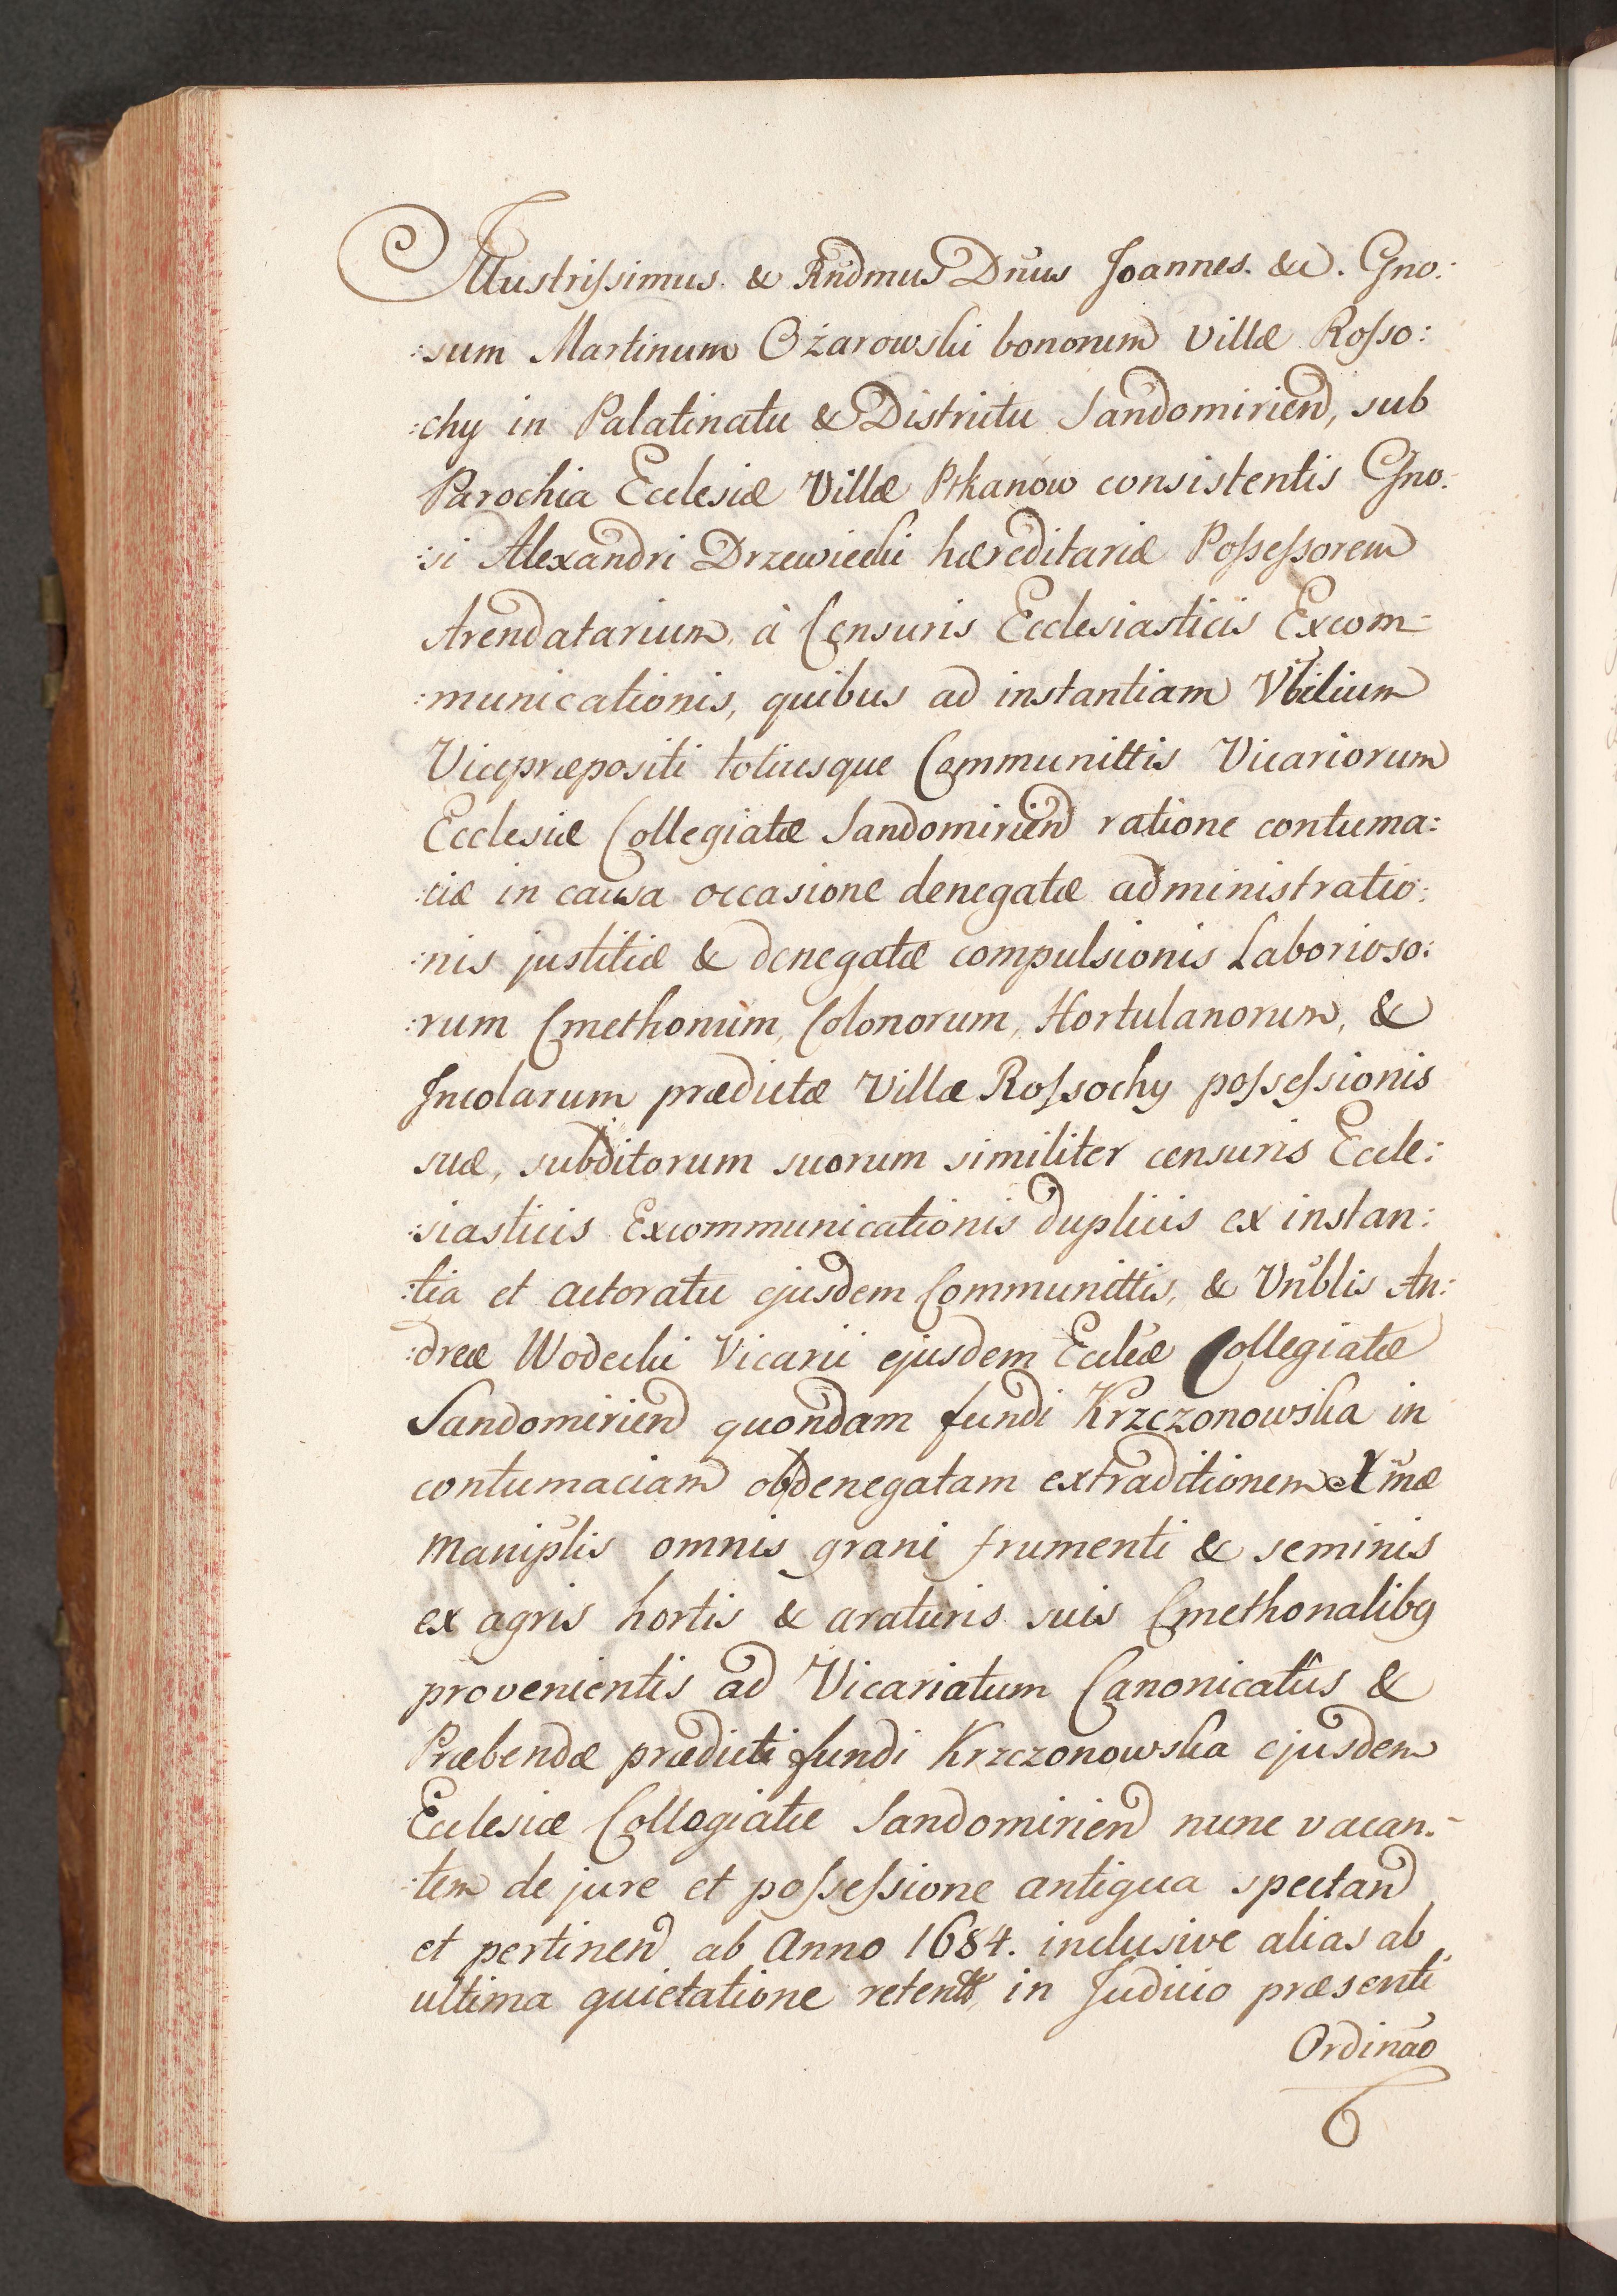 Illustrissimus & Rn̄dmus Dn̄us Joannes. &c. Gno:
:sum Martinum Ożarowski bonorum Villæ Rosso:
:chy in Palatinatu & Districtu Sandomirien̄, sub
Parochia Ecclesiæ Villæ Ptkanów consistentis Gno:
:si Alexandri Drzewiecki hæreditariæ Possessorem
Arendatarium, à Censuris Ecclesiasticis Excom:
:municationis, quibus ad instantiam Vbilium
Vicepræpositi totiusque Communittis Vicariorum
Ecclesiæ Collegiatæ Sandomirien̄ ratione contuma:
:ciæ in causa occasione denegatæ administratio:
:nis justitiæ & denegatæ compulsionis Laborioso:
:rum Cmethonum, Colonorum, Hortulanorum, &
Incolarum prædictæ Villæ Rossochy possessionis
suæ, subditorum suorum similiter censuris Eccle:
:siasticis Excommunicationis duplicis ex instan:
:tia et actoratu ejusdem Communittis, & Vn̄blis An:
:dreæ Wodecki Vicarii ejusdem Eccl̄iæ Collegiatæ
Sandomirien̄ quondam fundi Krzczonowska in
contumaciam ob denegatam extraditionem Xmæ
Manip̄lis omnis grani frumenti & seminis
ex agris hortis & araturis suis Cmethonalibq
provenientis ad Vicariatum Canonicatûs &
Præbendæ prædicti fundi Krzczonowska ejusdem
Ecclesiæ Collegiatæ Sandomirien̄ nunc vacan:
:tem de jure et possessione antiqua spectan̄
et pertinen̄ ab Anno 1684. inclusive alias ab
ultima quietatione retent, in Judicio præsenti
Ordin̄ao